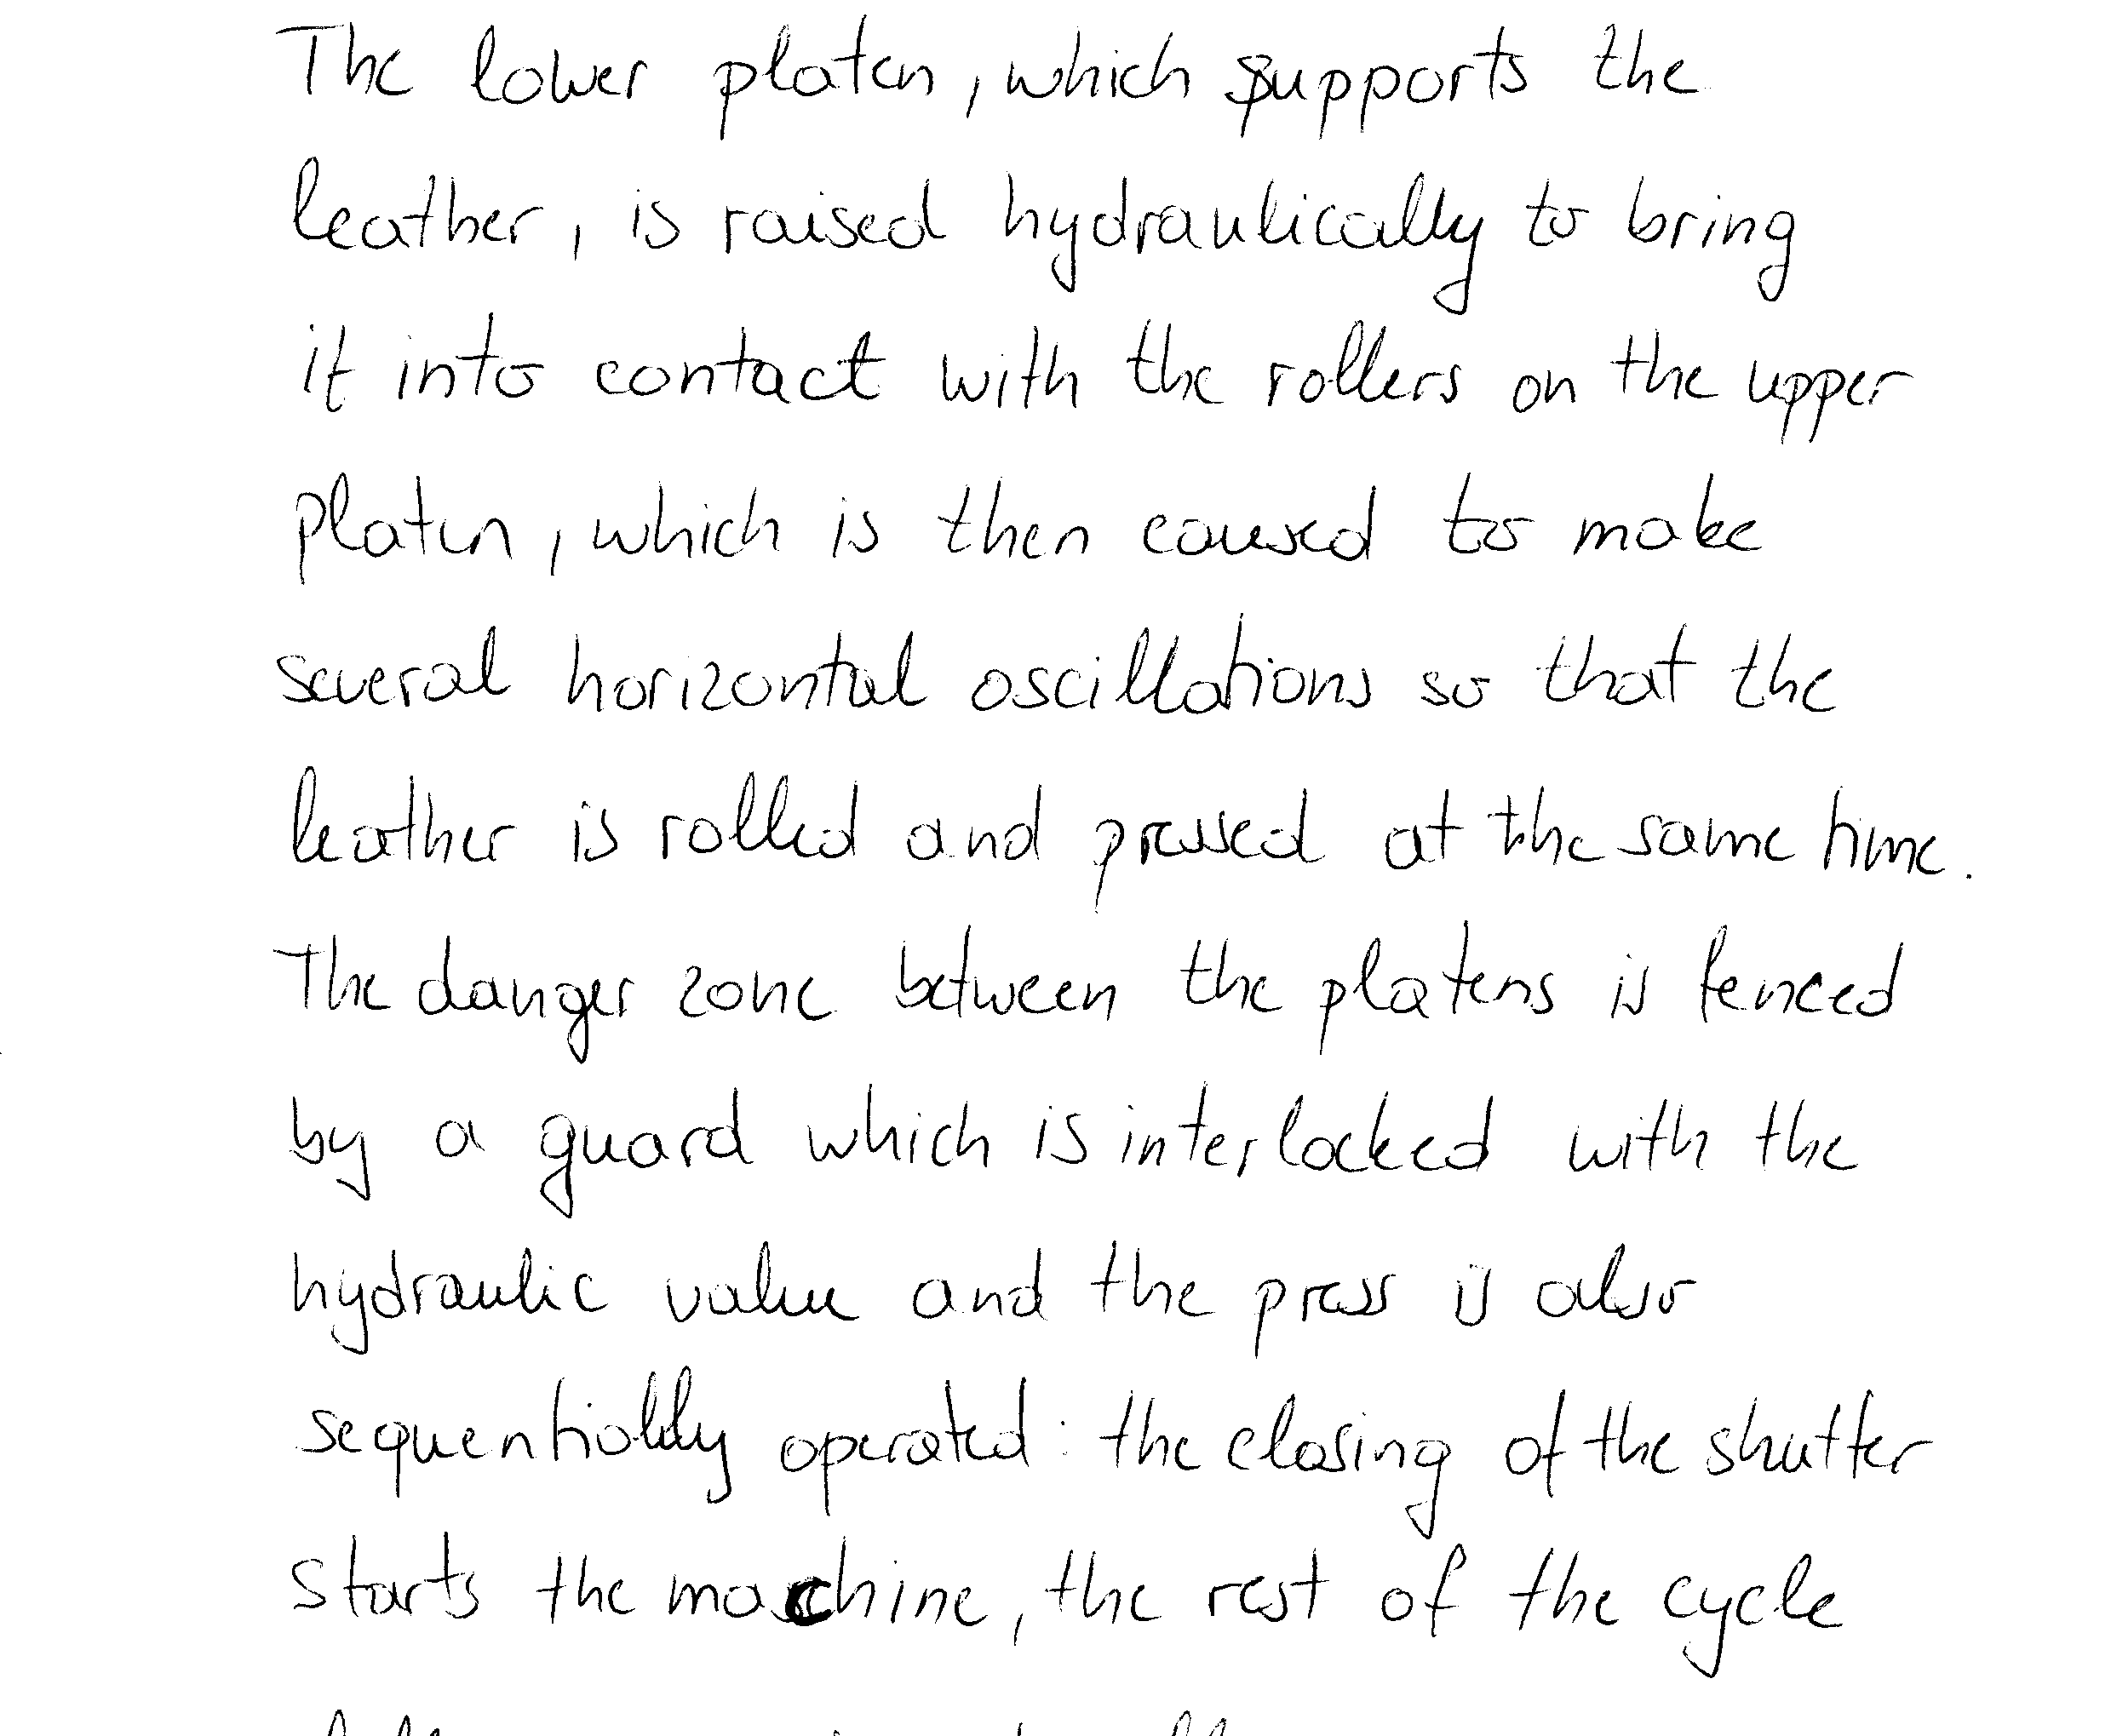 The lower platen, which supports the
leather, is raised hydraulically to bring
it into contact with the rollers on the upper
platen, which is then caused to make
several horizontal oscillations so that the
leather is rolled and pressed at the same time.
The danger zone between the platens is fenced
by a guard which is interlocked with the
hydraulic value and the press is also
sequentially operated: the closing of the shutter
starts the machine, the rest of the cycle